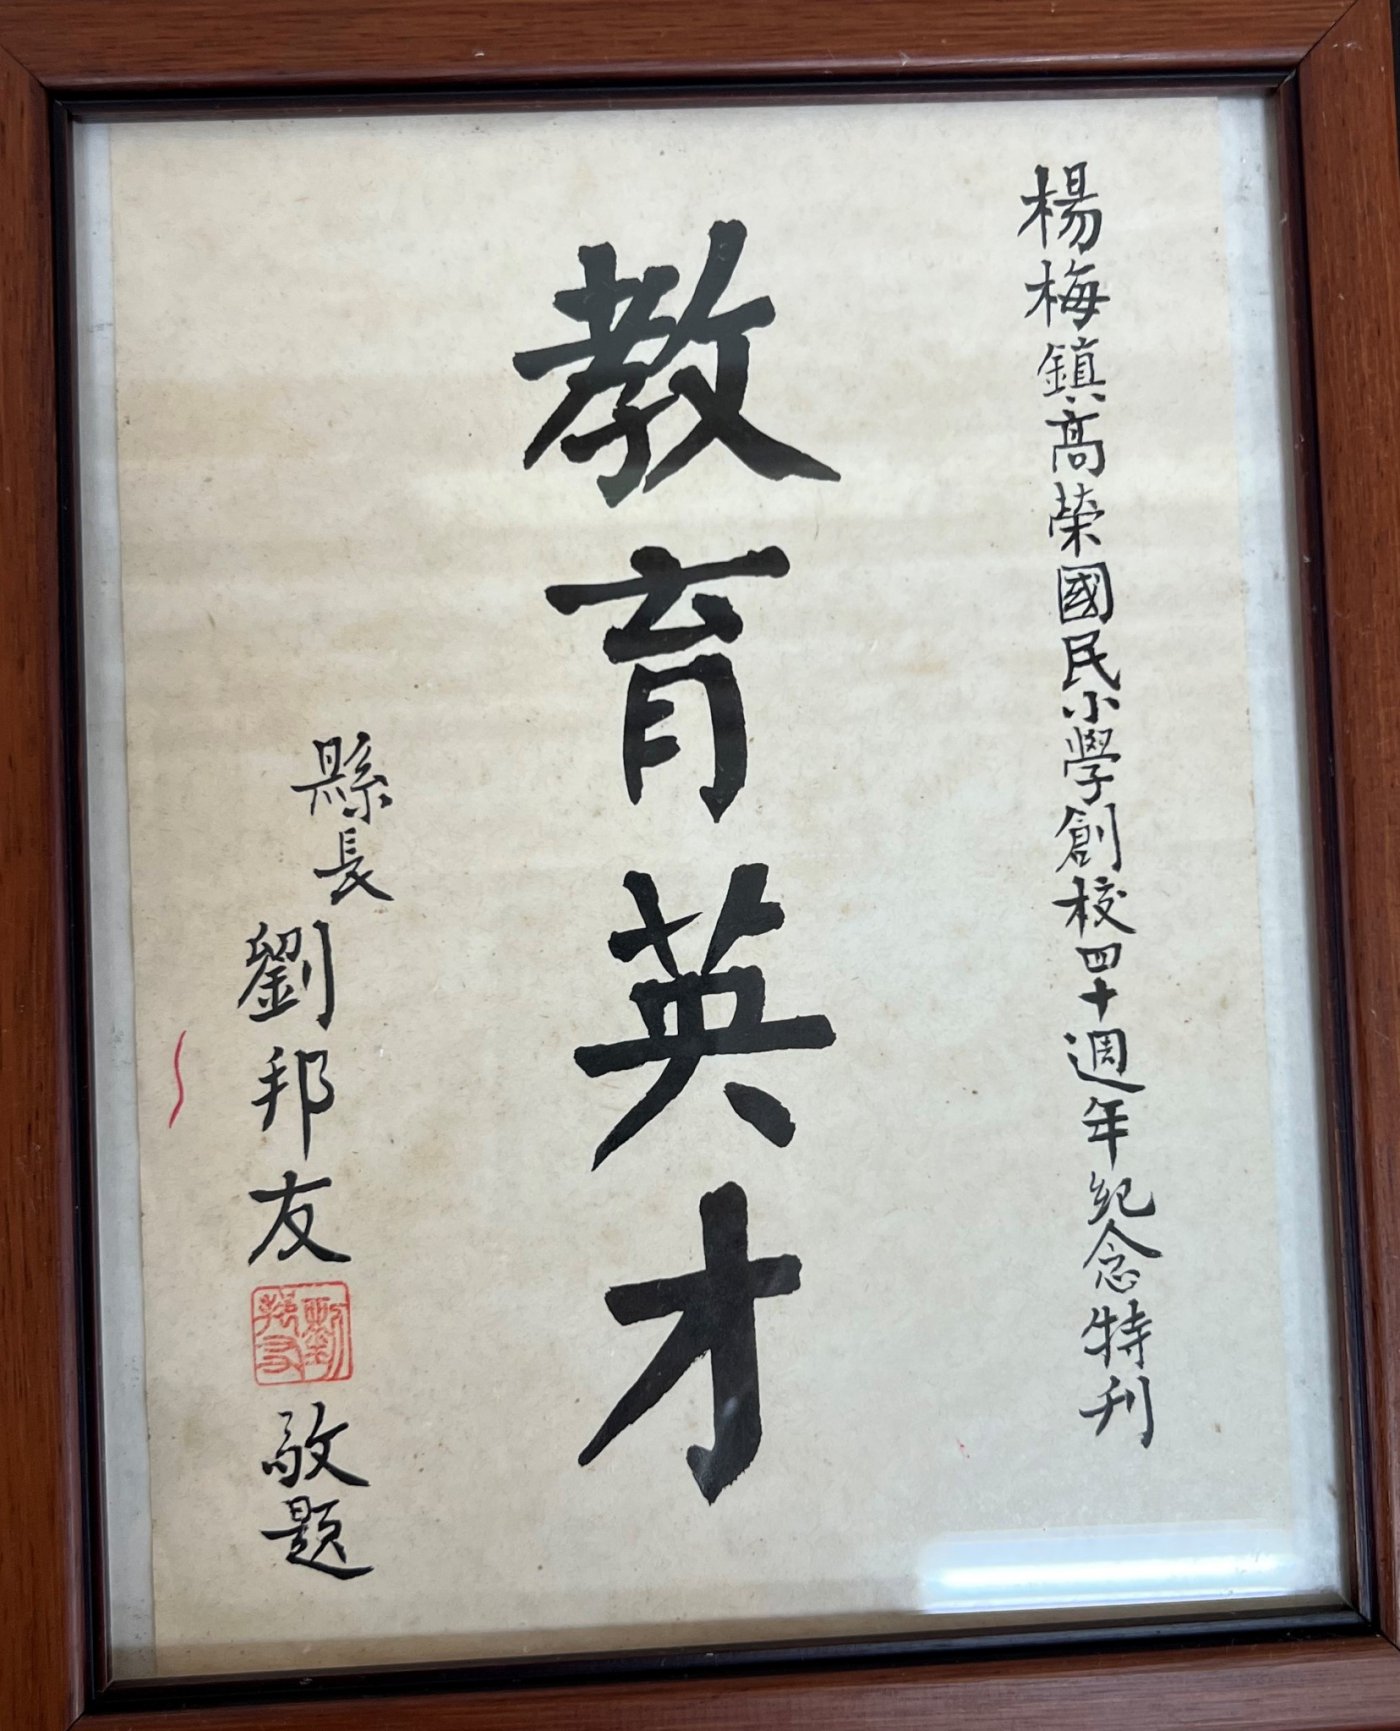 楊梅鎮高榮國民小學創校四十週年紀念特刊
教育英才
縣長
劉邦友
敬題